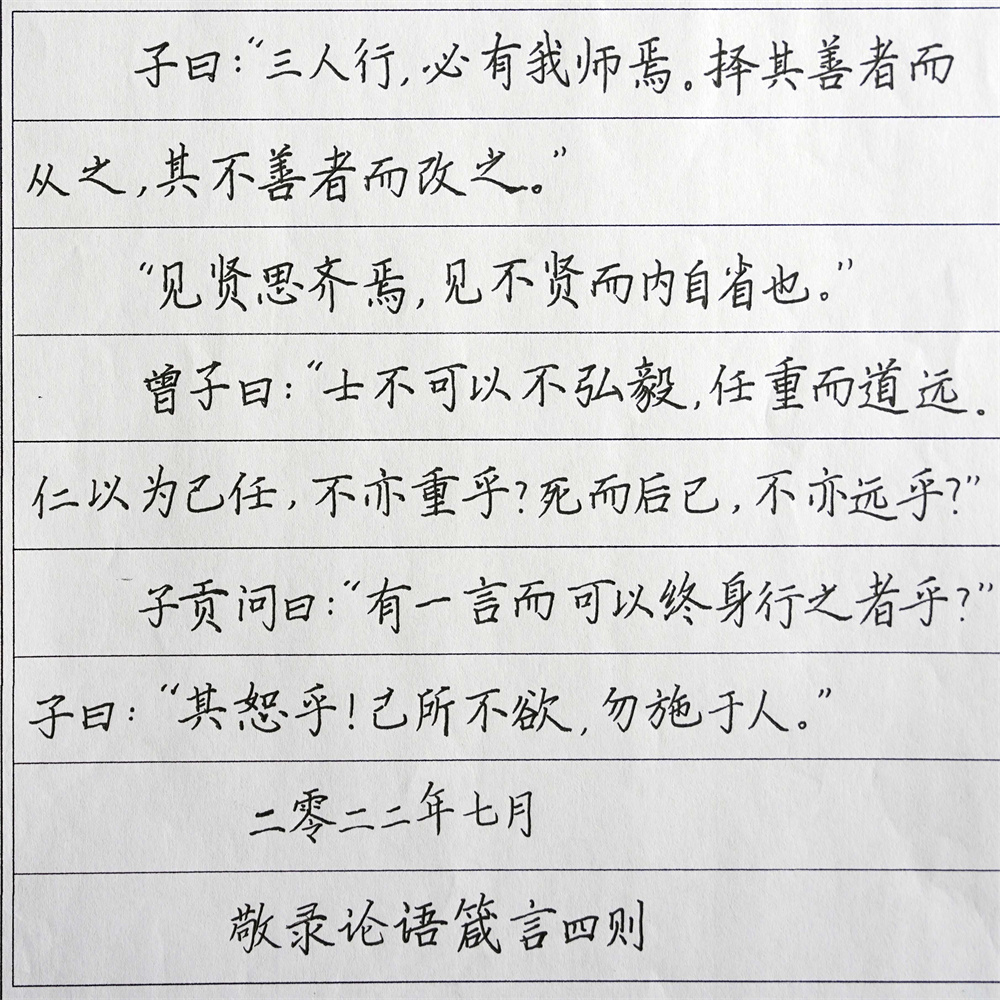 子曰：“三人行，必有我师焉。择其善者而
从之，其不善者而改之。”
“见贤思齐焉，见不贤而内自省也。”
曾子曰：“士不可以不弘毅，任重而道远。
仁以为己任，不亦重乎？死而后已，不亦远乎？”
子贡问曰：“有一言而可以终身行之者乎？”
子曰：“其恕乎！己所不欲，勿施于人。”
二零二二年七月
敬录论语箴言四则